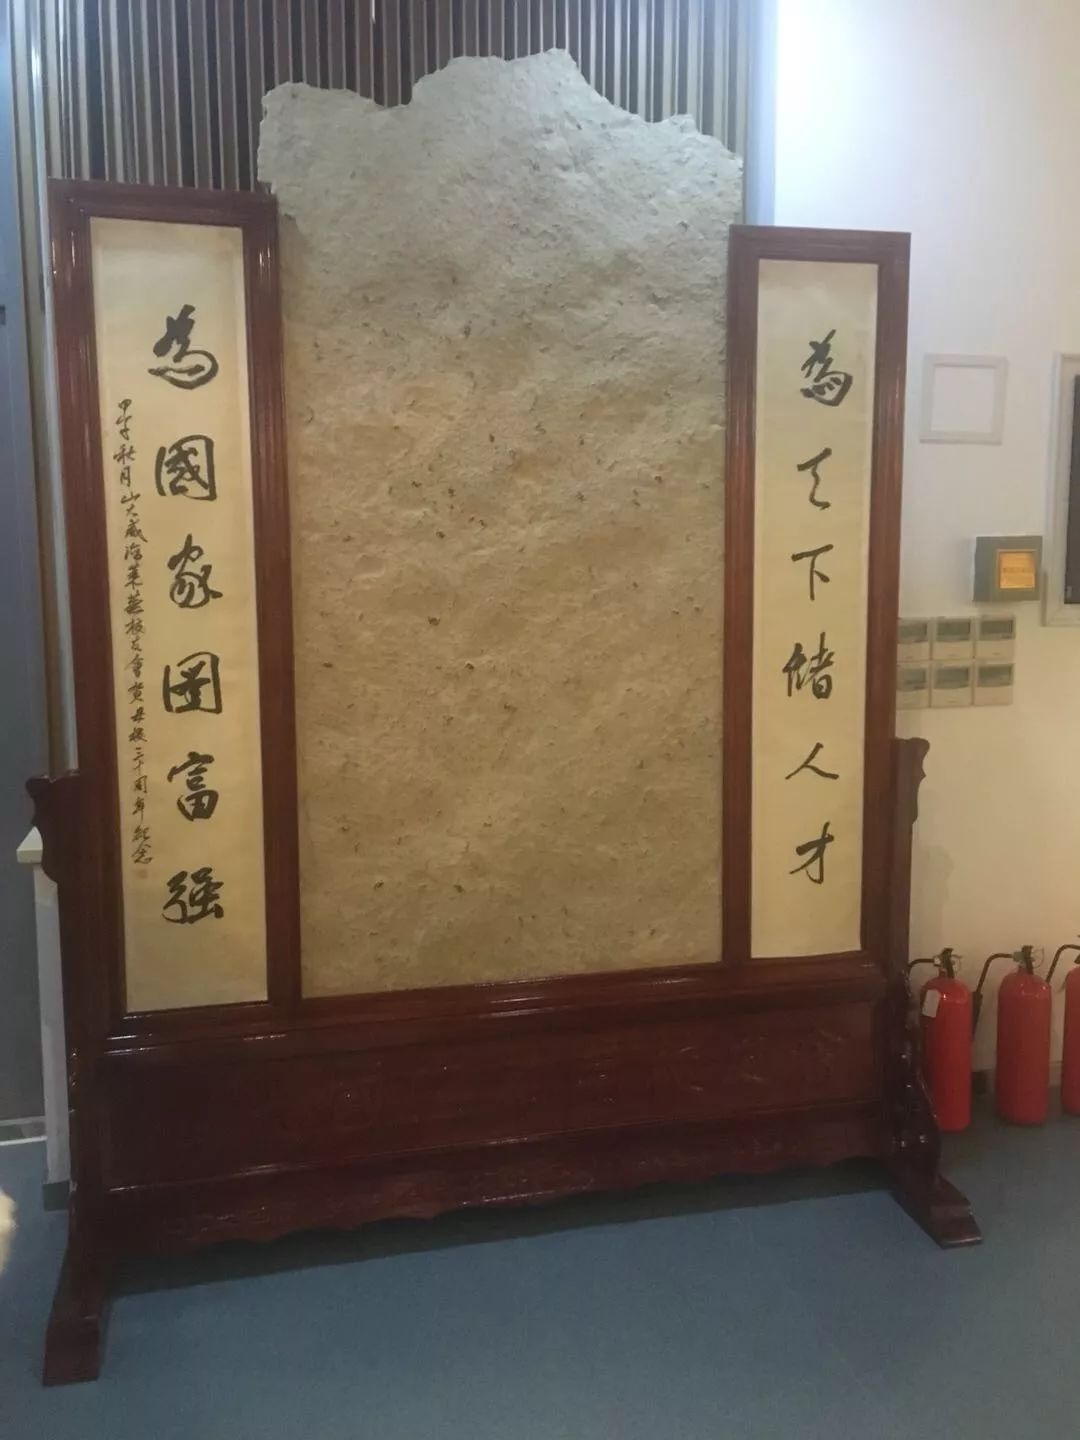 為天下储人才
為國家圖富强
甲午秋月山大威海莱蕪校友會賀母校三十周年紀念